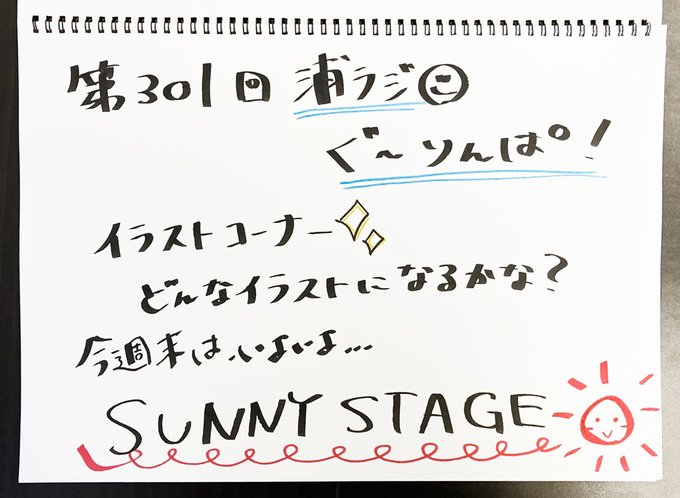 第301回 浦ラジ㋙
ぐ~りんぱ!
イラストコーナー
どんなイラストになるかな?
今週末は、いよいよ...
SUNNY STAGE